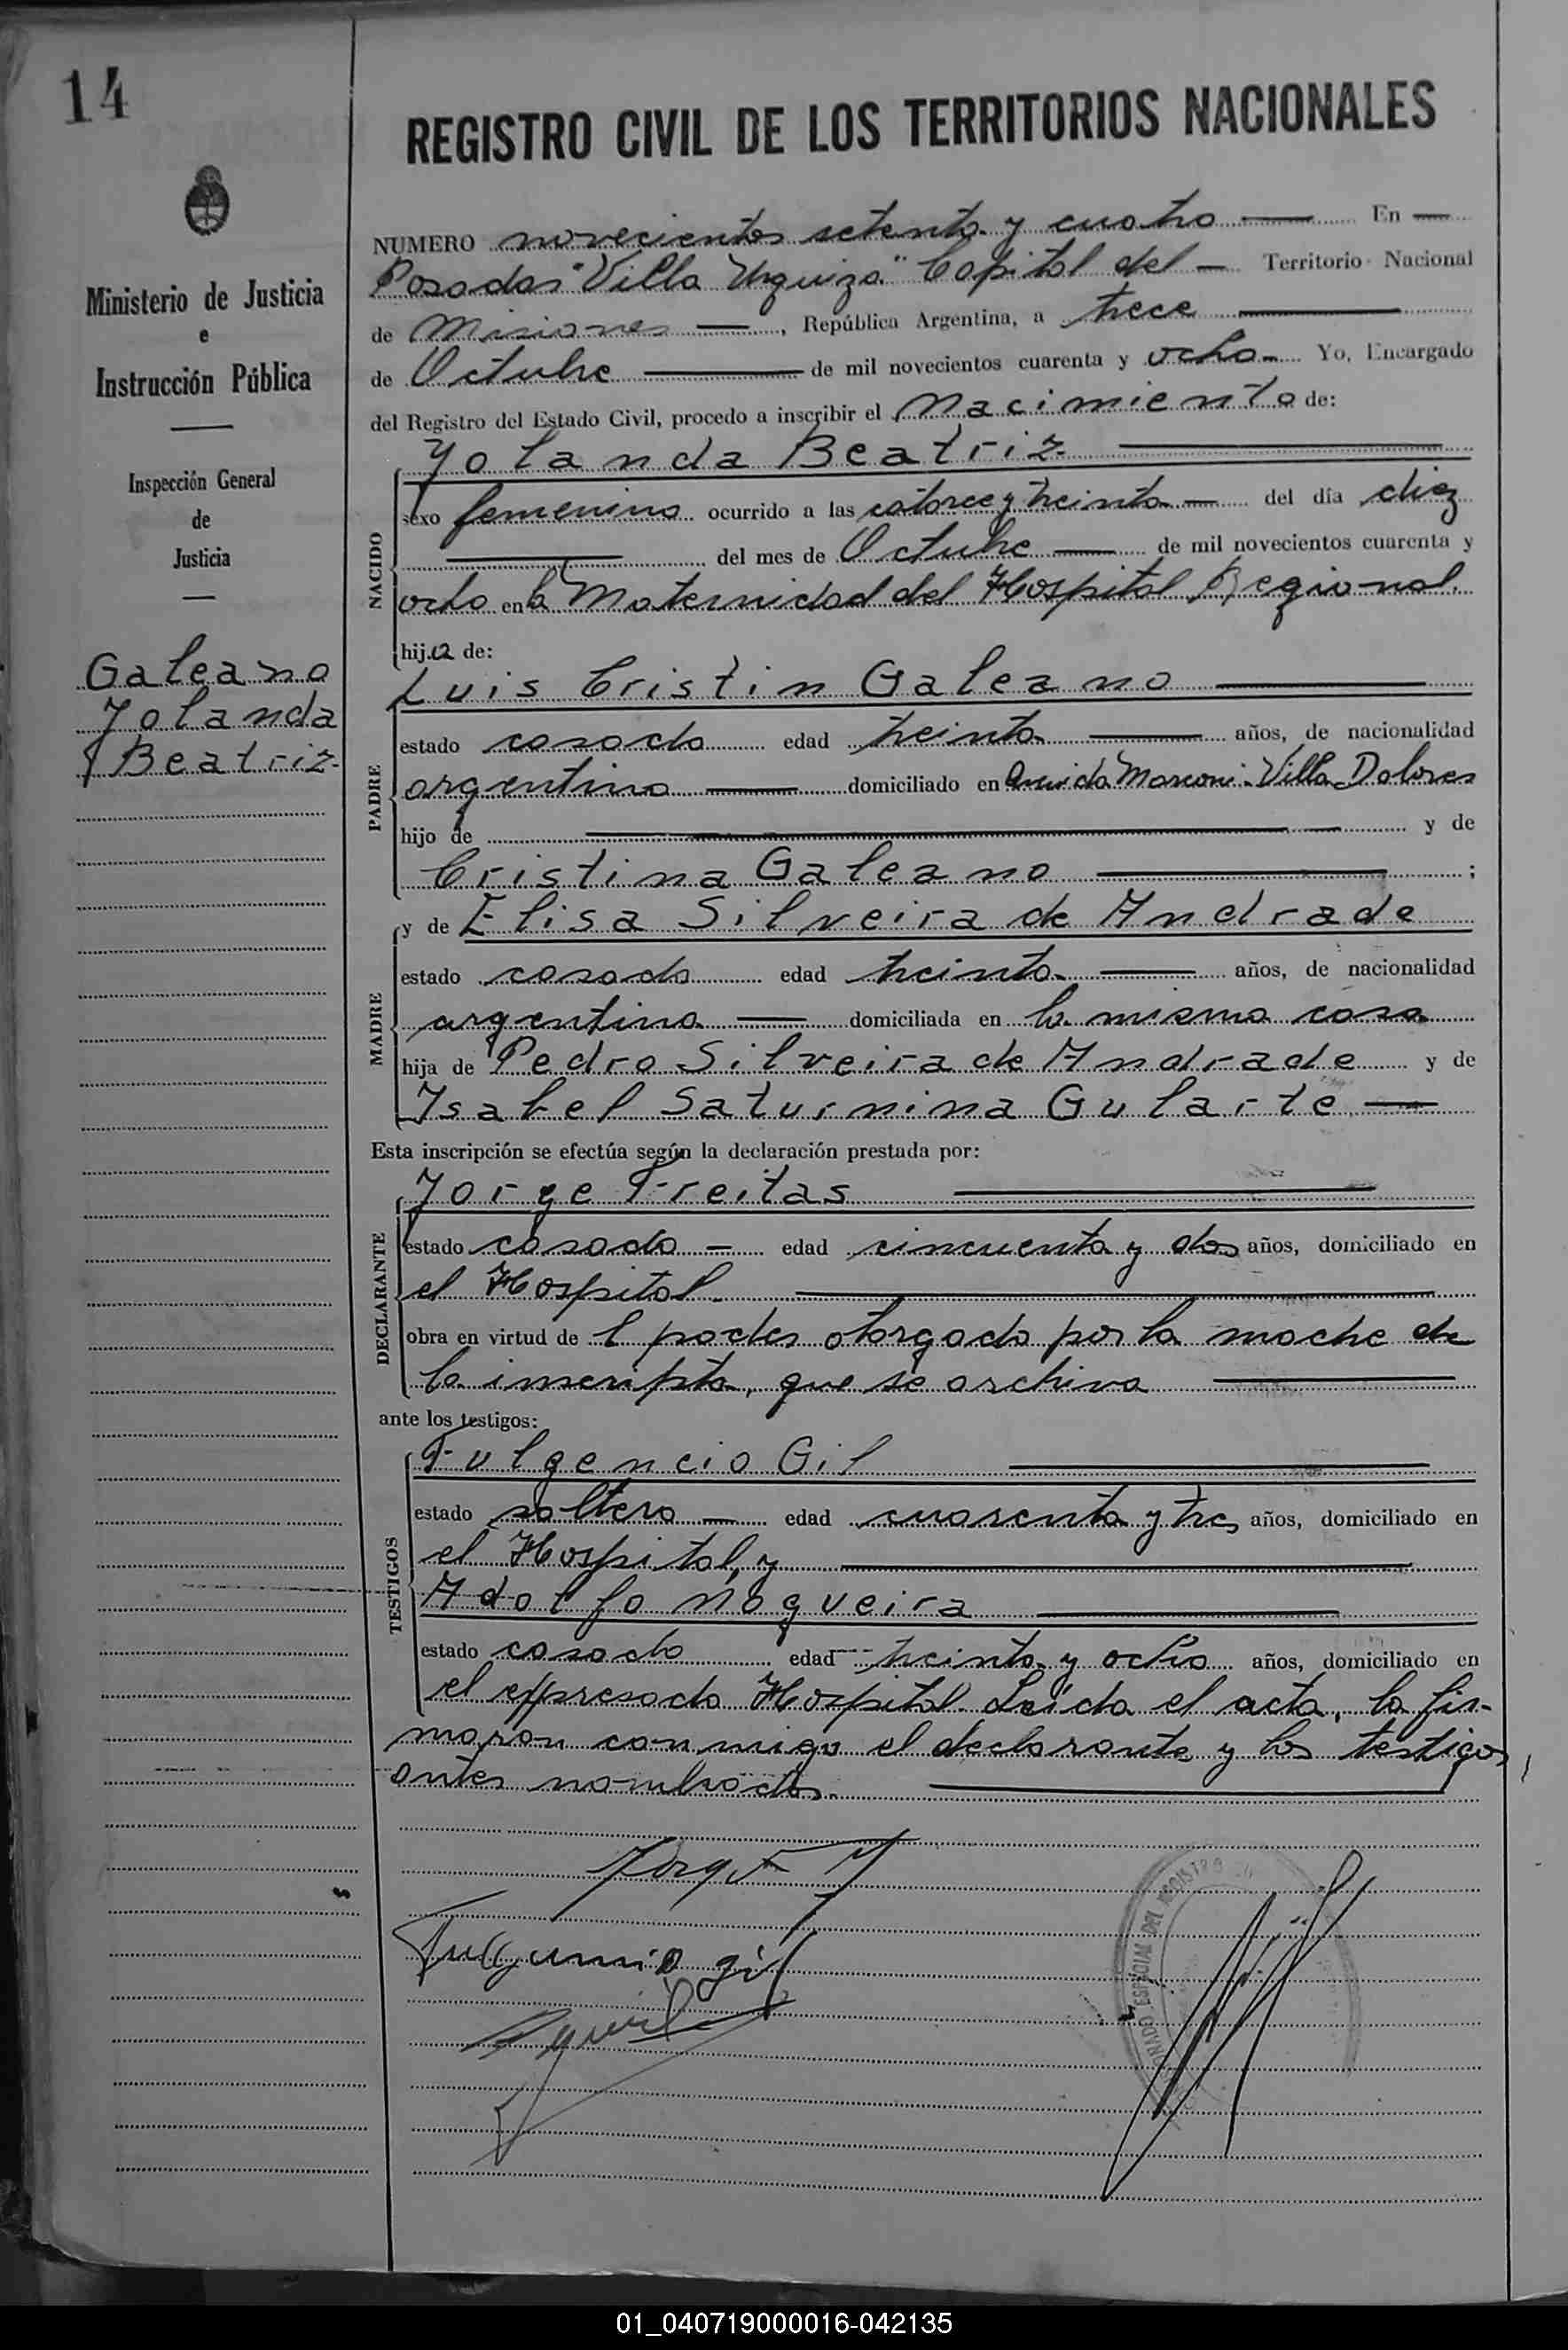 14
Ministerio de Justicia
e
Instrucción Pública
Inspección General
de
Justicia
Galeano
Yolanda
Beatriz
REGISTRO CIVIL DE LOS TERRITORIOS NACIONALES
NUMERO novecientos setenta y cuatro — En —
Posadas "Villa Urquiza" Capital del — Territorio Nacional
de Misiones —, República Argentina, a trece
de Octubre — de mil novecientos cuarenta y ocho — Yo, Encargado
del Registro del Estado Civil, procedo a inscribir el Nacimiento de:
Yolanda Beatriz
NACIDO
sexo femenino ocurrido a las catorce y treinta — del día diez
— del mes de Octubre — de mil novecientos cuarenta y
ocho en la Maternidad del Hospital Regional.
hija de:
Luis Cristin Galeano
PADRE
estado casado edad treinta — años, de nacionalidad
argentina — domiciliado en Avenida Marconi - Villa Dolores
hijo de — y de
Cristina Galeano — ;
y de Elisa Silveira de Andrade
MADRE
estado casada edad treinta — años, de nacionalidad
argentina — domiciliada en la misma casa
hija de Pedro Silveira de Andrade y de
Ysabel Saturnina Gularte —
Esta inscripción se efectúa según la declaración prestada por:
Jorge Freitas
DECLARANTE
estado casado — edad cincuenta y dos años, domiciliado en
el Hospital
obra en virtud de l poder otorgado por la madre de
la inscripta, que se archiva
ante los testigos:
Fulgencio Gil
TESTIGOS
estado soltero — edad cuarenta y tres años, domiciliado en
el Hospital, y
Adolfo Nogueira
estado casado edad treinta y ocho años, domiciliado en
el expresado Hospital. Leída el acta, la fir-
maron conmigo el declarante y los testigos
antes nombrados.
Jorge F
Fulgencio Gil
ESPECIAL DEL REGISTRO
01_040719000016-042135